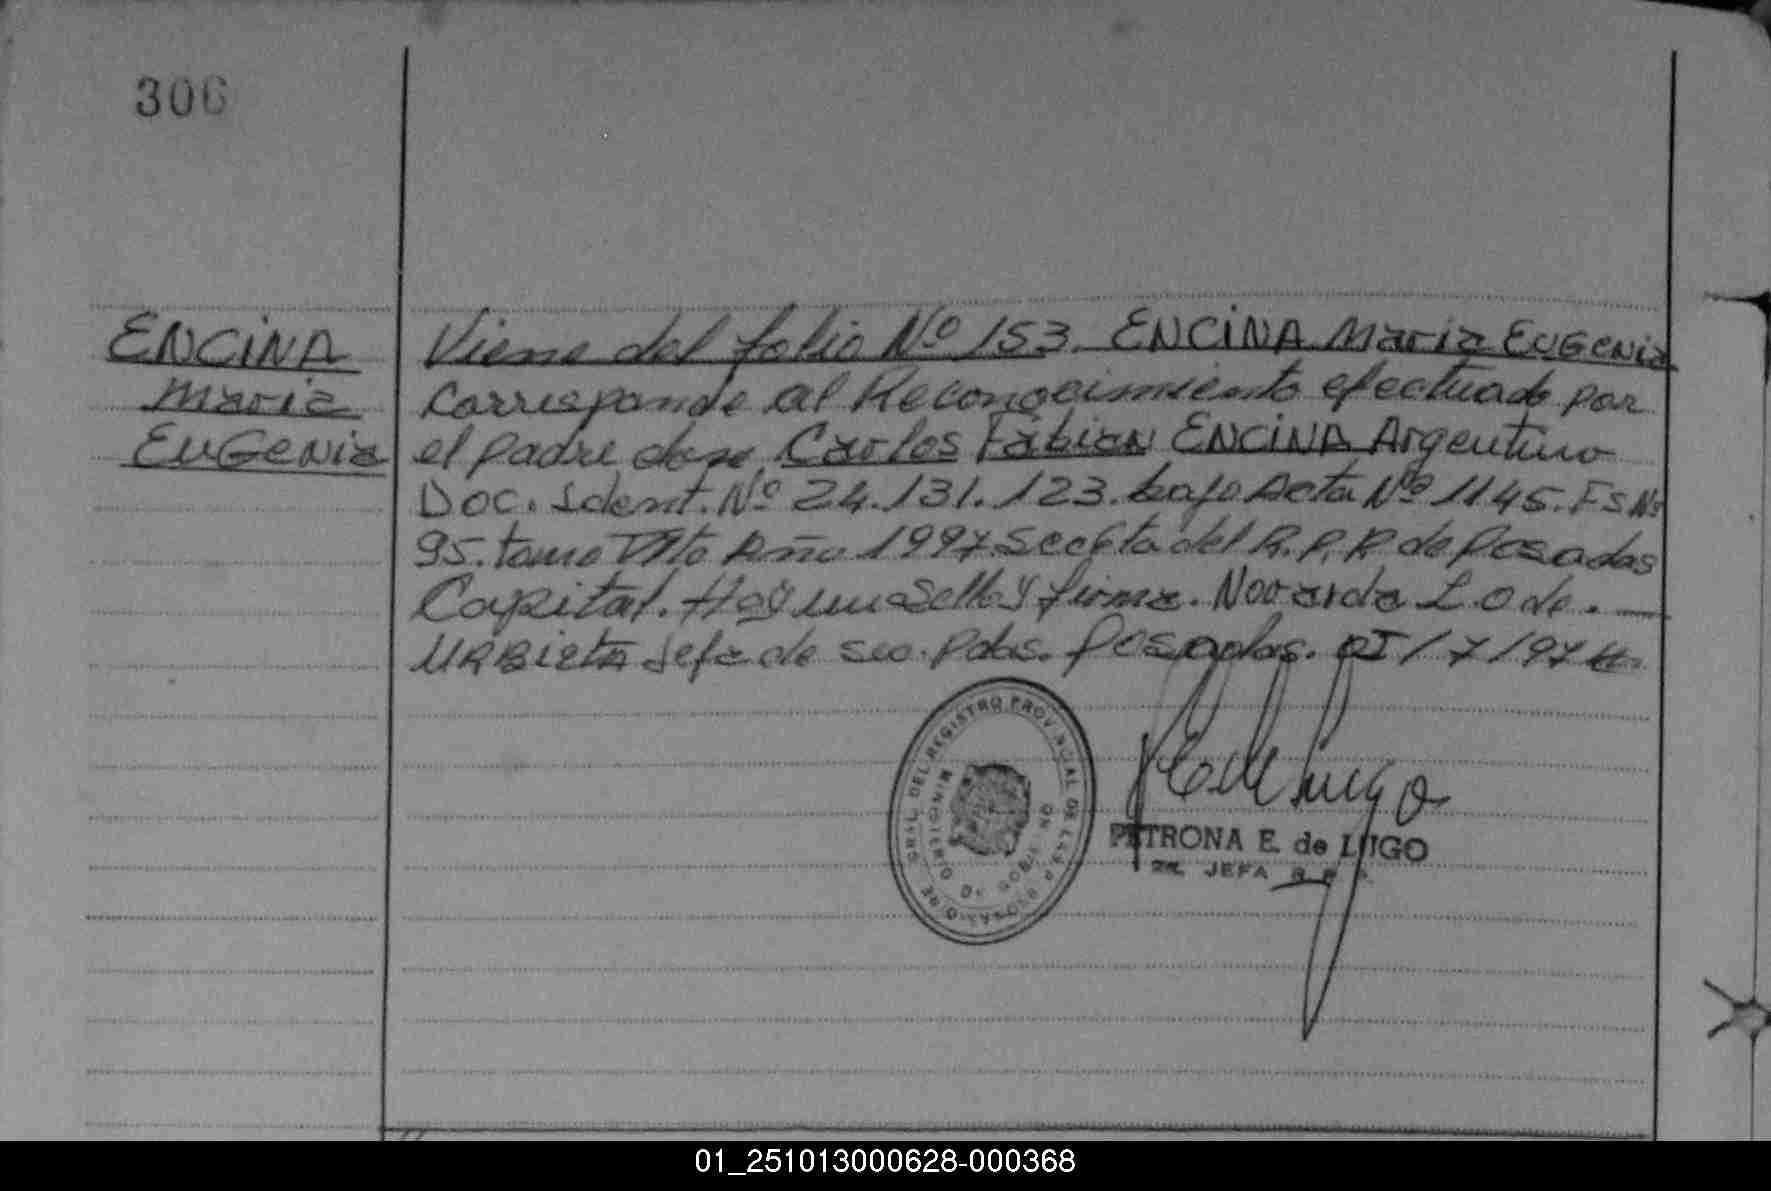 306
ENCINA
Maria
EUGenia
Viene del folio Nº 153. ENCINA Maria EUGenia
Corresponde al Reconocimiento efectuado por
el padre don Carlos Fabian ENCINA Argentino
Doc. Ident. Nº 24.131.123. bajo Acta Nº 1145. Fs Nº
95. tomo Año 1997 Secc 6ta del R.P.P. de Posadas
Capital. Hay un Sello y firma. L.O de.
URBIETA Jefa de Posadas. /7/97
DEL REGISTRO PROVINCIAL DE LAS PERSONAS
MINISTERIO DE GOBIERNO
PETRONA E. de LUGO
JEFA R.P.P.
01_251013000628-000368